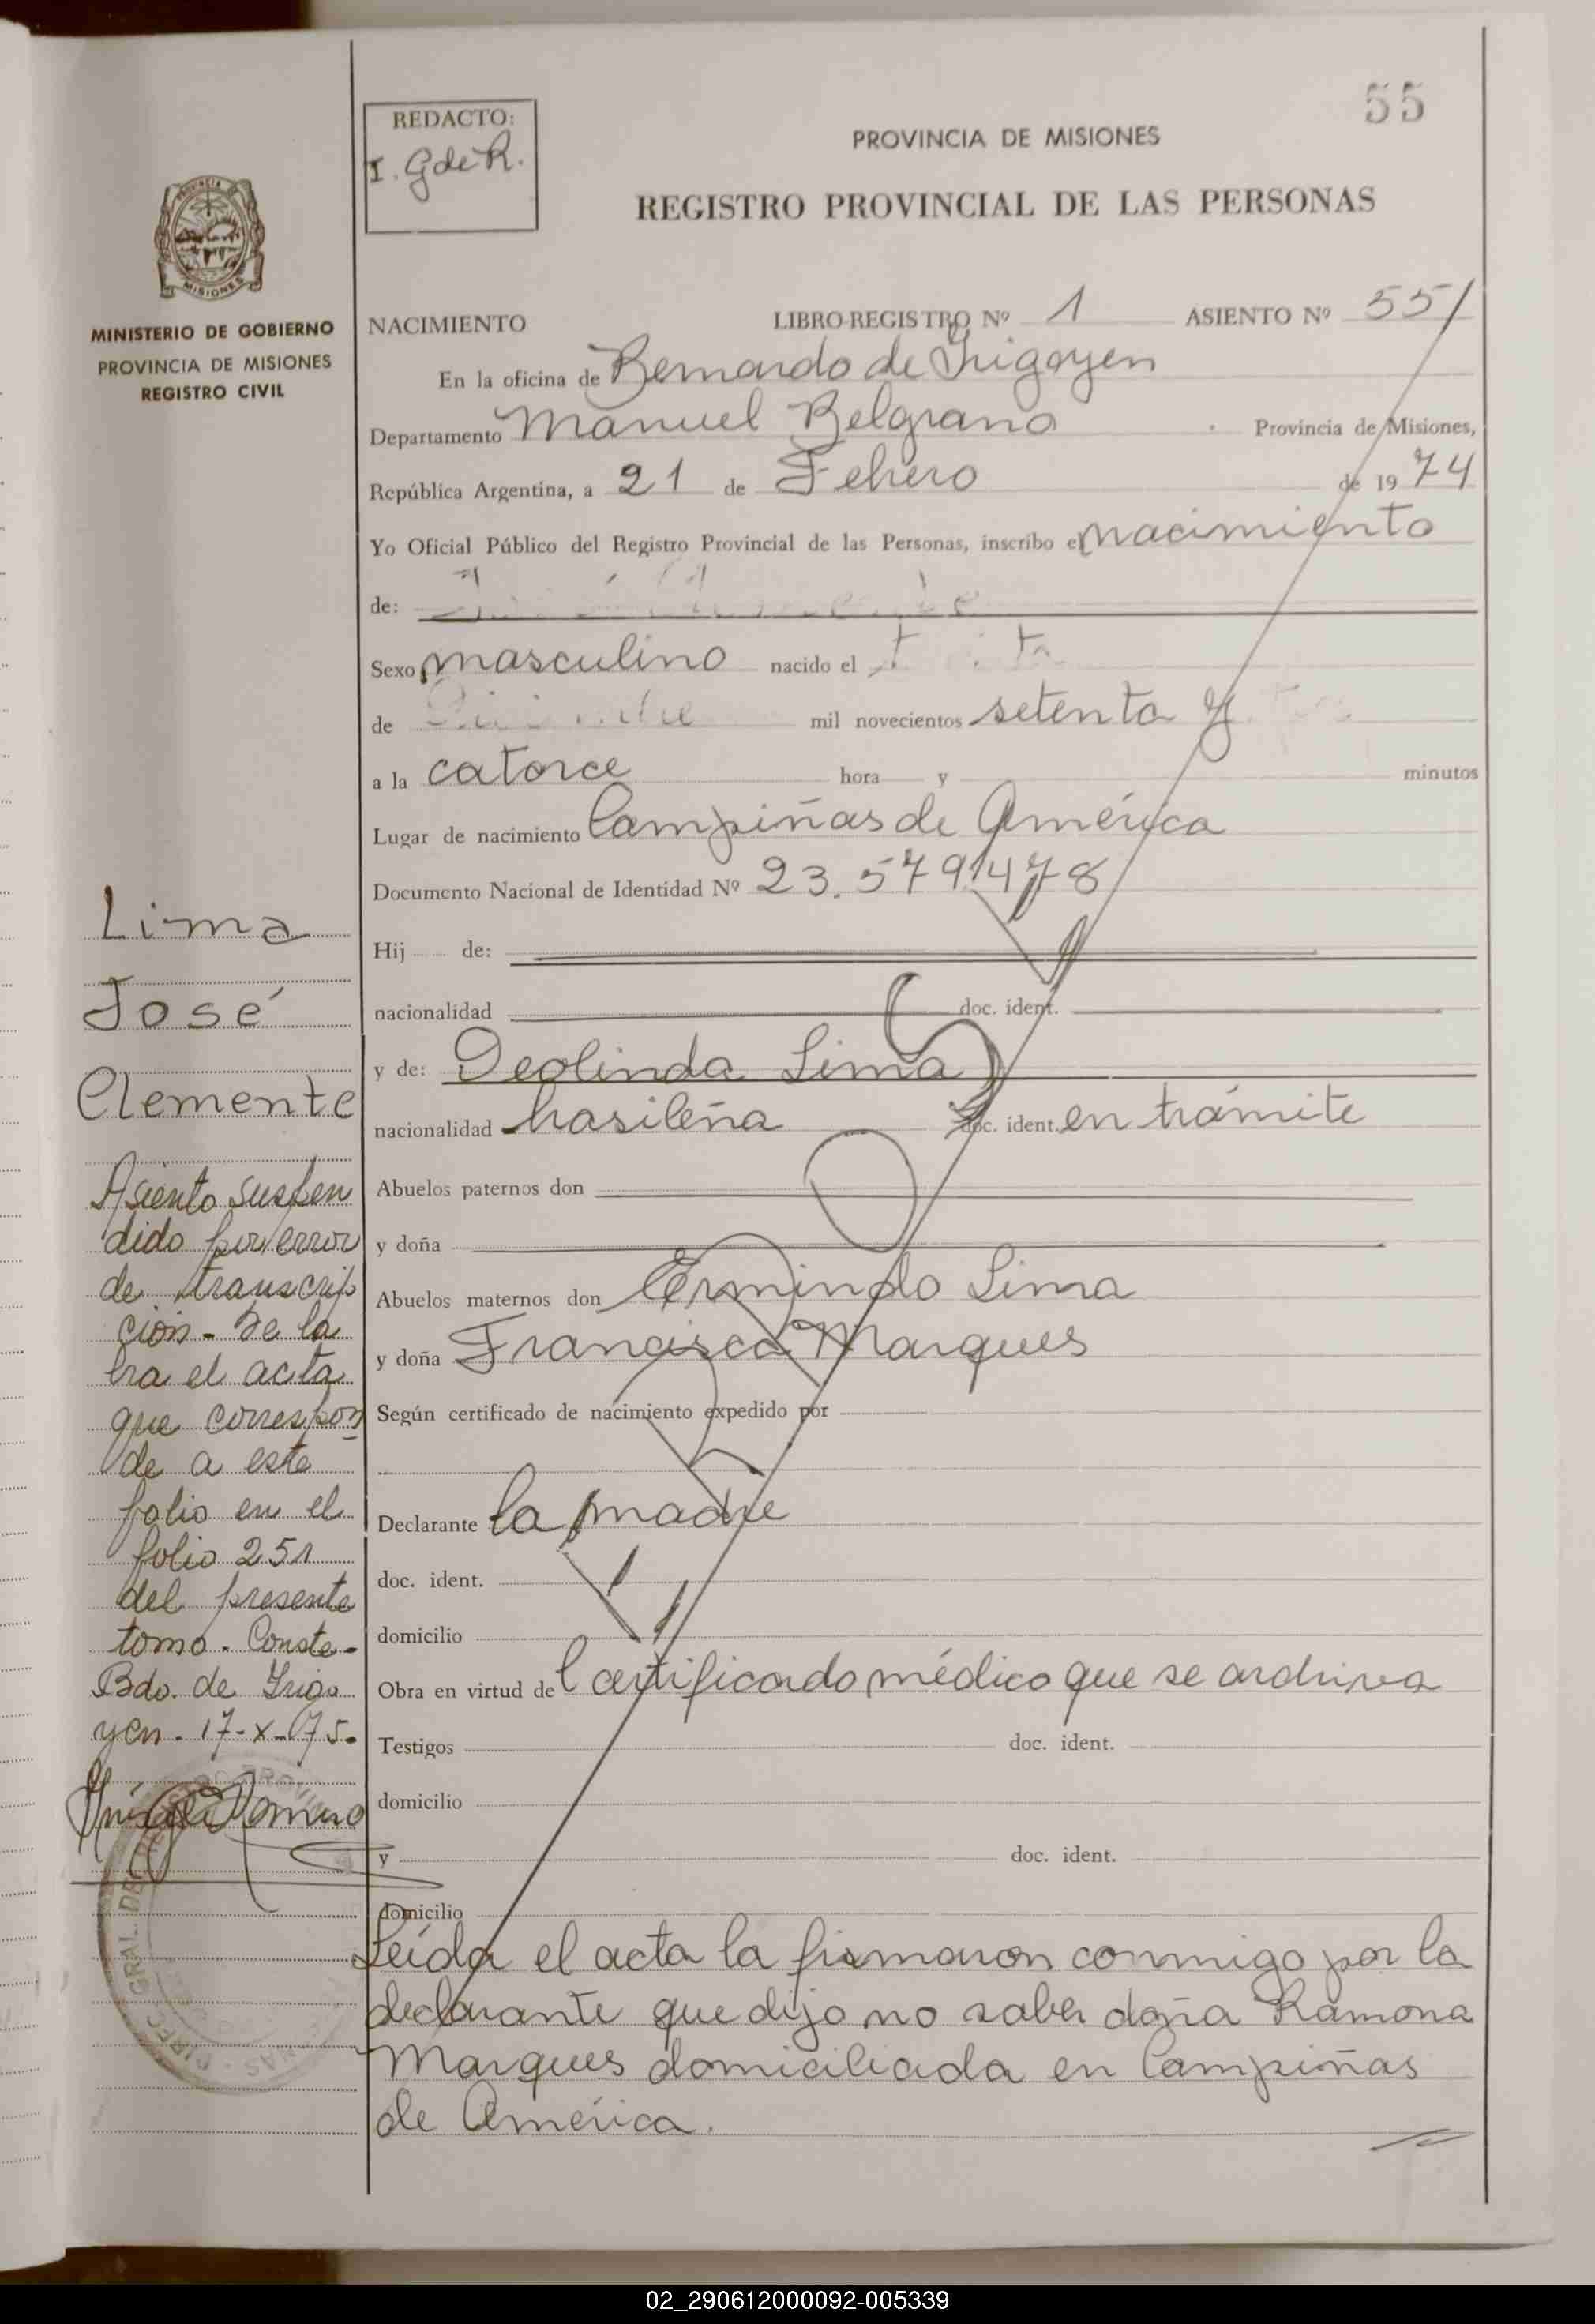 55
REDACTO:
I. G de R.
PROVINCIA DE MISIONES
REGISTRO PROVINCIAL DE LAS PERSONAS
MISIONES
MINISTERIO DE GOBIERNO
PROVINCIA DE MISIONES
REGISTRO CIVIL
NACIMIENTO LIBRO-REGISTRO Nº 1 ASIENTO Nº 55/
En la oficina de Bernardo de Irigoyen
Departamento Manuel Belgrano Provincia de Misiones,
República Argentina, a 21 de Febrero de 19 74
Yo Oficial Público del Registro Provincial de las Personas, inscribo el nacimiento
de:
Sexo masculino nacido el
de mil novecientos setenta y
a la catorce hora y minutos
Lugar de nacimiento Campiñas de América
Documento Nacional de Identidad Nº 23.579.478
Hij de:
nacionalidad doc. ident.
y de: Deolinda Lima
nacionalidad brasileña doc. ident. en trámite
Abuelos paternos don
y doña
Abuelos maternos don Ermindo Lima
y doña Francisca Marques
Según certificado de nacimiento expedido por
Declarante la madre
doc. ident.
domicilio
Obra en virtud del certificado médico que se archiva
Testigos doc. ident.
domicilio
y doc. ident.
domicilio
Leída el acta la firmaron conmigo por la
declarante que dijo no saber doña Ramona
Marques domiciliada en Campiñas
de América.
Lima
José
Clemente
Asiento suspen
dido por error
de transcrip
ción - Se la
bra el acta
que correspon
de a este
folio en el
folio 251
del presente
tomo. Conste-
Bdo. de Irigo
yen - 17-X-75-
02_290612000092-005339